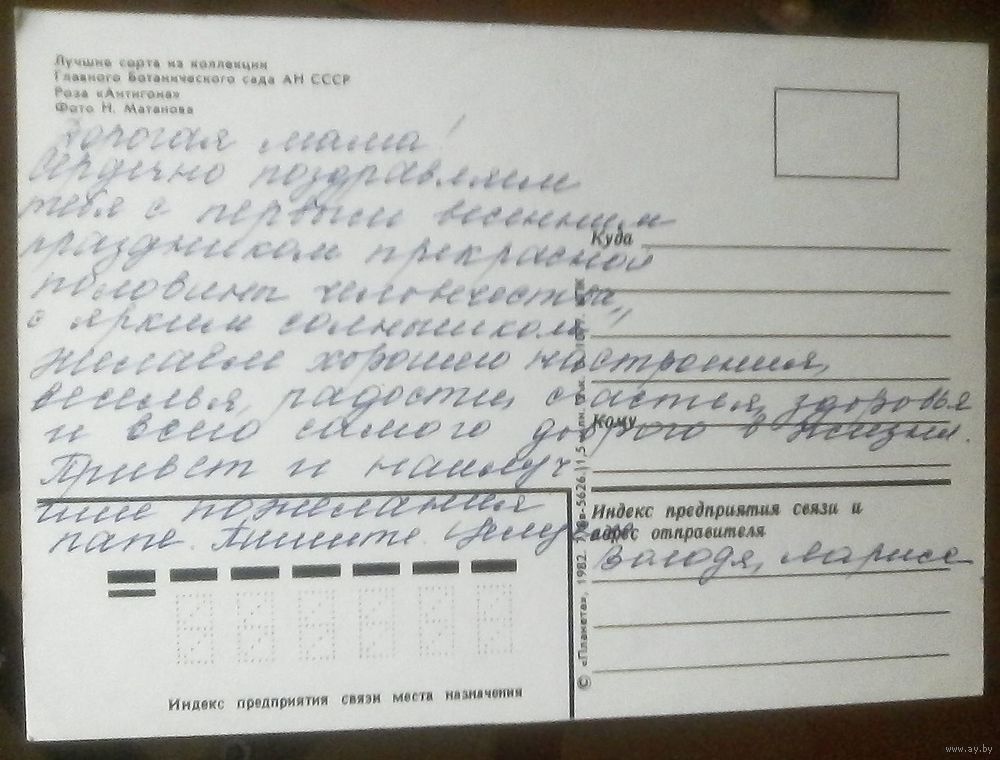 Лучшие сорта из коллекции
Главного Ботанического сада АН СССР
Роза «Антигона»
Фото Н. Матанова
Дорогая мама!
Сердечно поздравляем
тебя с первым весенним
праздником прекрасной
половины человечества,
с ярким солнышком!
Желаем хорошего настроения,
веселья, радости, счастья, здоровья
и всего самого доброго в жизни.
Привет и наилуч
шие пожелания
папе. Пишите. Целуем
Володя, Лариса
Куда
Кому
Индекс предприятия связи и
адрес отправителя
Индекс предприятия связи места назначения
© «Планета», 1982.
www.ay.by